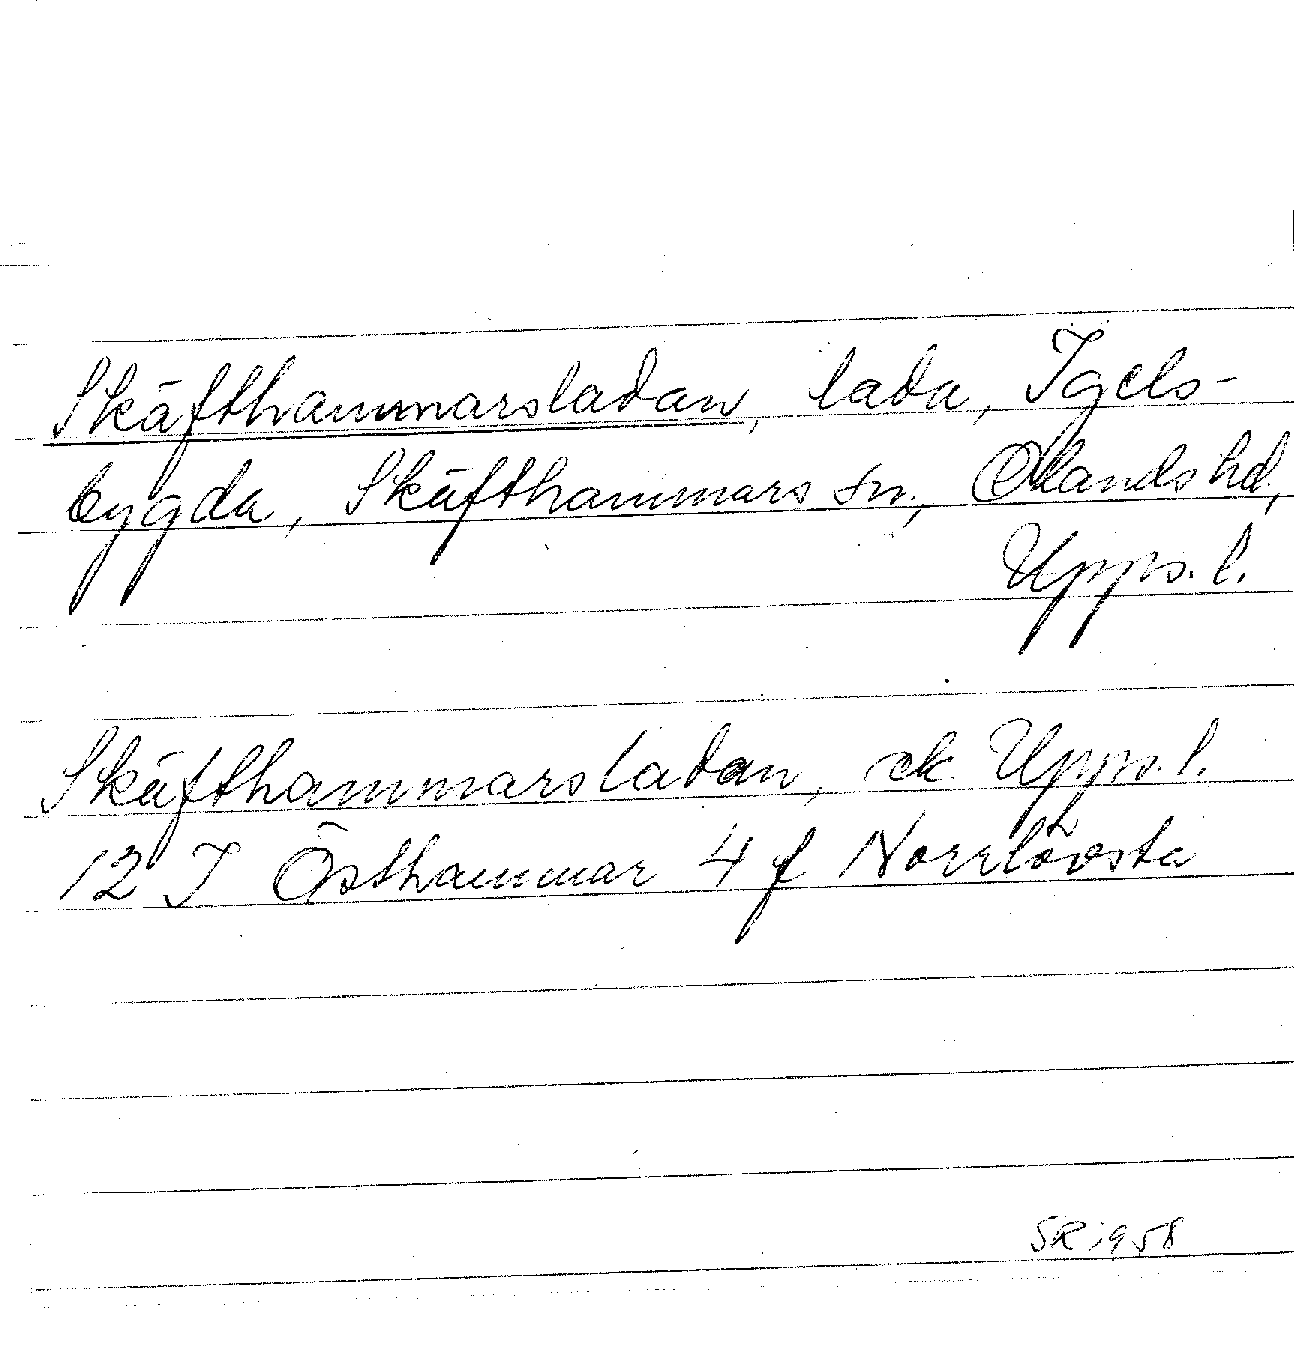 Skäfthammarsladan, lada, Igels-
bygda, Skäfthammars sn, Olands hd,
Upps. l.
Skäfthammarsladan, ek. Upps. l.
12 I Östhammar 4 f Norrlövsta
SR 1958